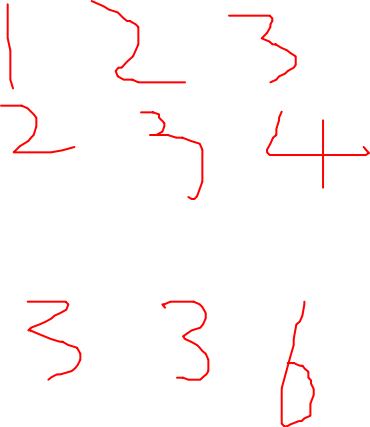 1 2 3
2 3 4
3 3 6